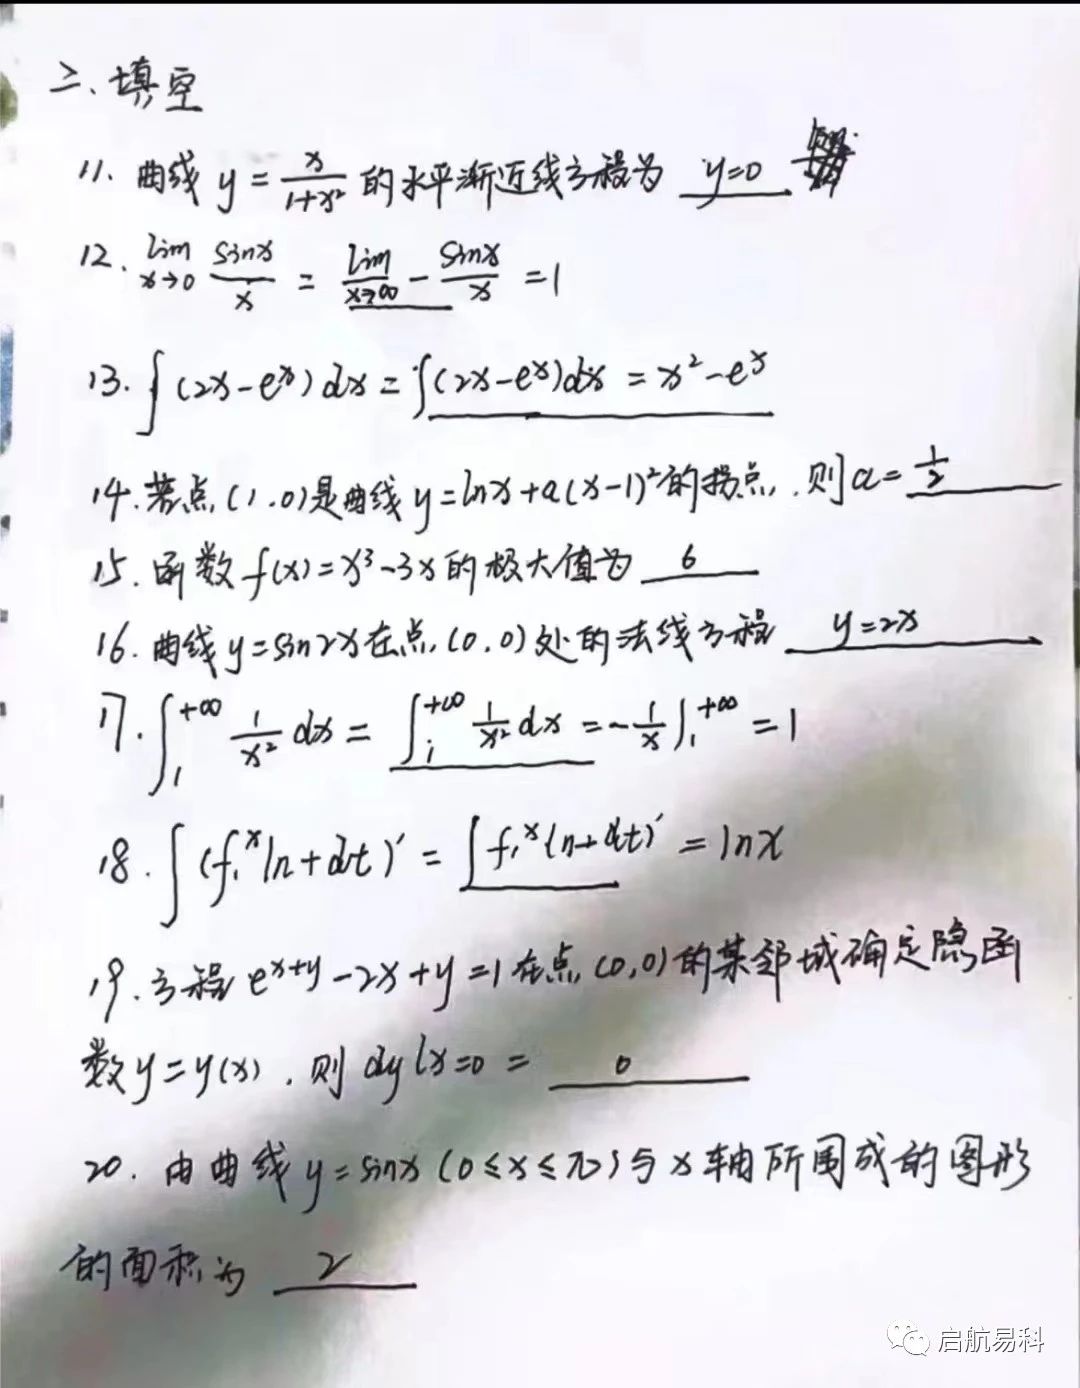 二、填空
11. 曲线 y = x/(1+x²) 的水平渐近线方程为 y=0
12. lim x→0 sinx/x = lim x→∞ - sinx/x = 1
13. ∫(2x-eˣ)dx = ∫(2x-eˣ)dx = x²-eˣ
14. 若点(1,0)是曲线 y=lnx+a(x-1)²的拐点,则a= 1/2
15. 函数 f(x)=x³-3x的极大值为 6
16. 曲线 y=sin2x在点(0,0)处的法线方程 y=2x
17. ∫₁^+∞ 1/x² dx = ∫₁^+∞ 1/x² dx = -1/x |₁^+∞ = 1
18. ∫(f₁ˣ ln+dt)′ = ∫f₁ˣ(n+dt)′ = lnx
19. 方程 e^x+y -2x+y=1在点(0,0)的某邻域确定隐函
数y=y(x),则dy|x=0 = 0
20. 由曲线 y=sinx(0≤x≤π)与x轴所围成的图形
的面积为 2
启航易科